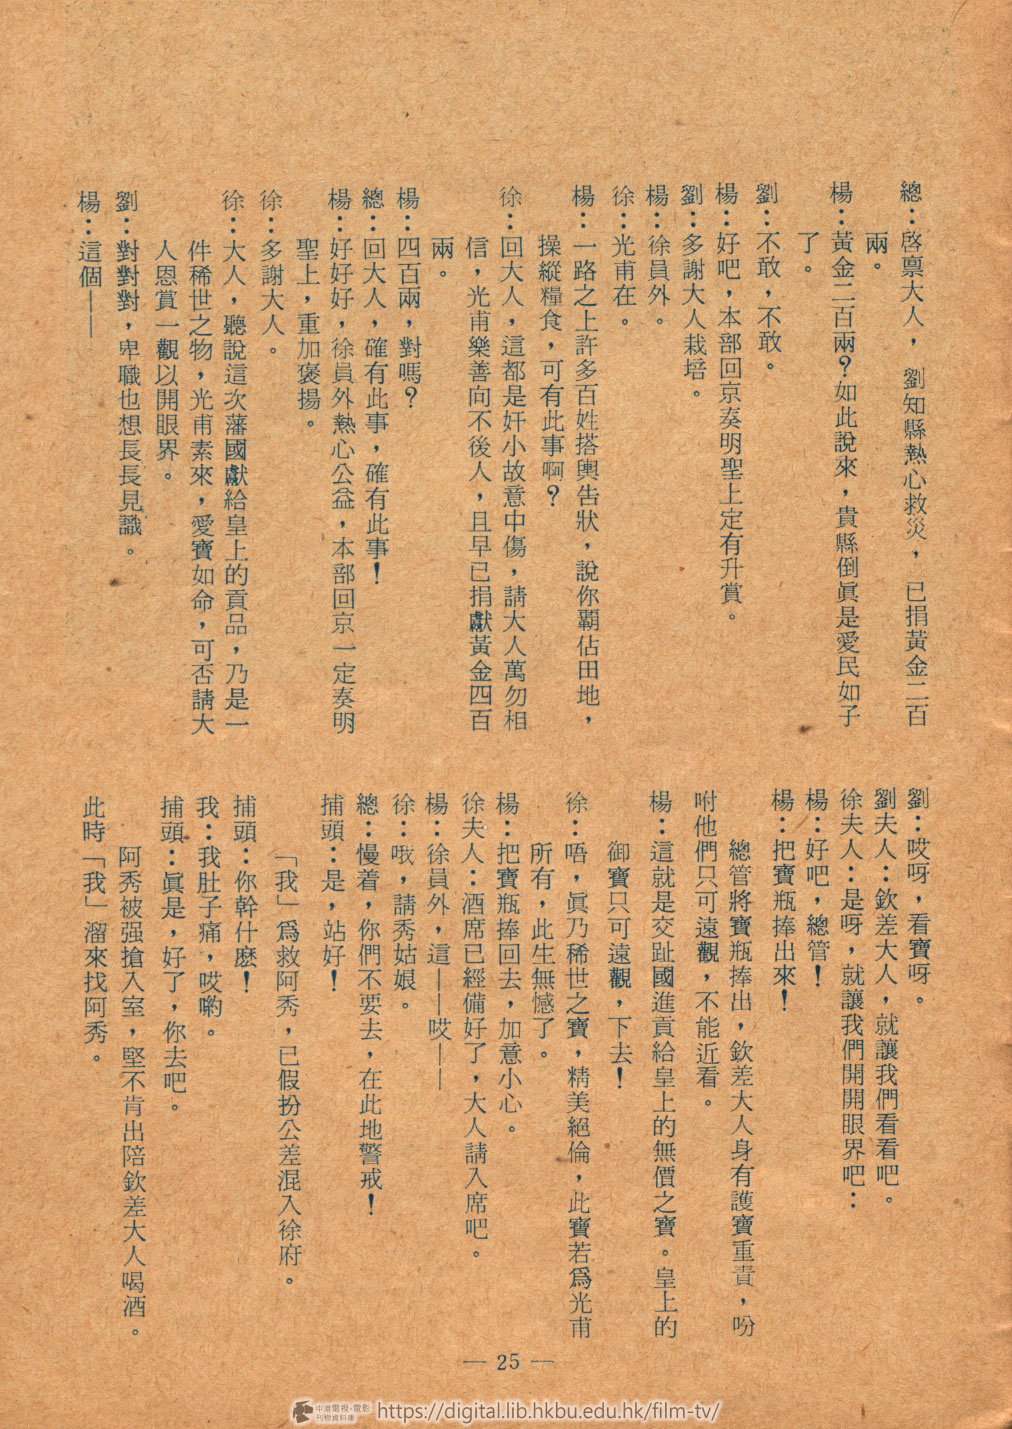 總：啓禀大人，劉知縣熱心救災，已捐黃金二百
兩。
楊：黃金二百兩？如此說來，貴縣倒眞是愛民如子
了。
劉：不敢，不敢。
楊：好吧，本部回京奏明聖上定有升賞。
劉：多謝大人栽培。
楊：徐員外。
徐：光甫在。
楊：一路之上許多百姓搭輿告狀，說你覇佔田地，
操縱糧食，可有此事啊？
徐：回大人，這都是奸小故意中傷，請大人萬勿相
信，光甫樂善向不後人，且早已捐獻黃金四百
兩。
楊：四百兩，對嗎？
總：回大人，確有此事，確有此事！
楊：好好好，徐員外熱心公益，本部回京一定奏明
聖上，重加褒揚。
徐：多謝大人。
徐：大人，聽說這次藩國獻給皇上的貢品，乃是一
件稀世之物，光甫素來，愛寶如命，可否請大
人恩賞一觀以開眼界。
劉：對對對，卑職也想長長見識。
楊：這個——
劉：哎呀，看寶呀。
劉夫人：欽差大人，就讓我們看看吧。
徐夫人：是呀，就讓我們開開眼界吧：
楊：好吧，總管！
楊：把寶瓶捧出來！
總管將寶瓶捧出，欽差大人身有護寶重責，吩
咐他們只可遠觀，不能近看。
楊：這就是交趾國進貢給皇上的無價之寶。皇上的
御寶只可遠觀，下去！
徐：唔，眞乃稀世之寶，精美絕倫，此寶若爲光甫
所有，此生無憾了。
楊：把寶瓶捧回去，加意小心。
徐夫人：酒席已經備好了，大人請入席吧。
楊：徐員外，這——哎——
徐：哦，請秀姑娘。
總：慢着，你們不要去，在此地警戒！
捕頭：是，站好！
「我」爲救阿秀，已假扮公差混入徐府。
捕頭：你幹什麽！
我：我肚子痛，哎喲。
捕頭：眞是，好了，你去吧。
阿秀被强搶入室，堅不肯出陪欽差大人喝酒。
此時「我」溜來找阿秀。
— 25 —
中港電視·電影
刊物資料庫
https://digital.lib.hkbu.edu.hk/film-tv/